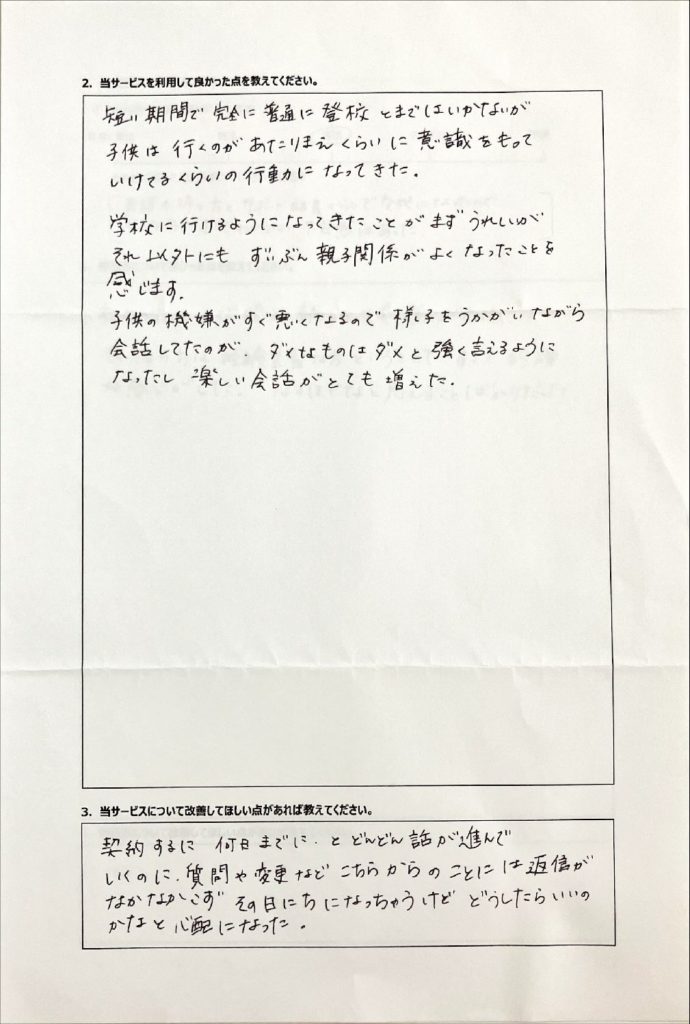 2. 当サービスを利用して良かった点を教えてください。
短い期間で 完全に普通に登校 とまではいかないが
子供は 行くのが あたりまえ くらいに 意識をもって
いけてるくらいの行動になってきた。
学校に行けるようになってきたことが まず うれしいが
それ以外にも ずいぶん 親子関係が よく なったことを
感じます。
子供の機嫌がすぐ悪くなるので 様子をうかがいながら
会話してたのが、ダメなものはダメと 強く言えるように
なったし 楽しい会話がとても 増えた。
3. 当サービスについて改善してほしい点があれば教えてください。
契約するに 何日までに、と どんどん 話が進んで
いくのに、質問や変更など こちらからの ことには 返信が
なかなかこず その日にちになっちゃうけど どうしたらいいの
かなと 心配になった。